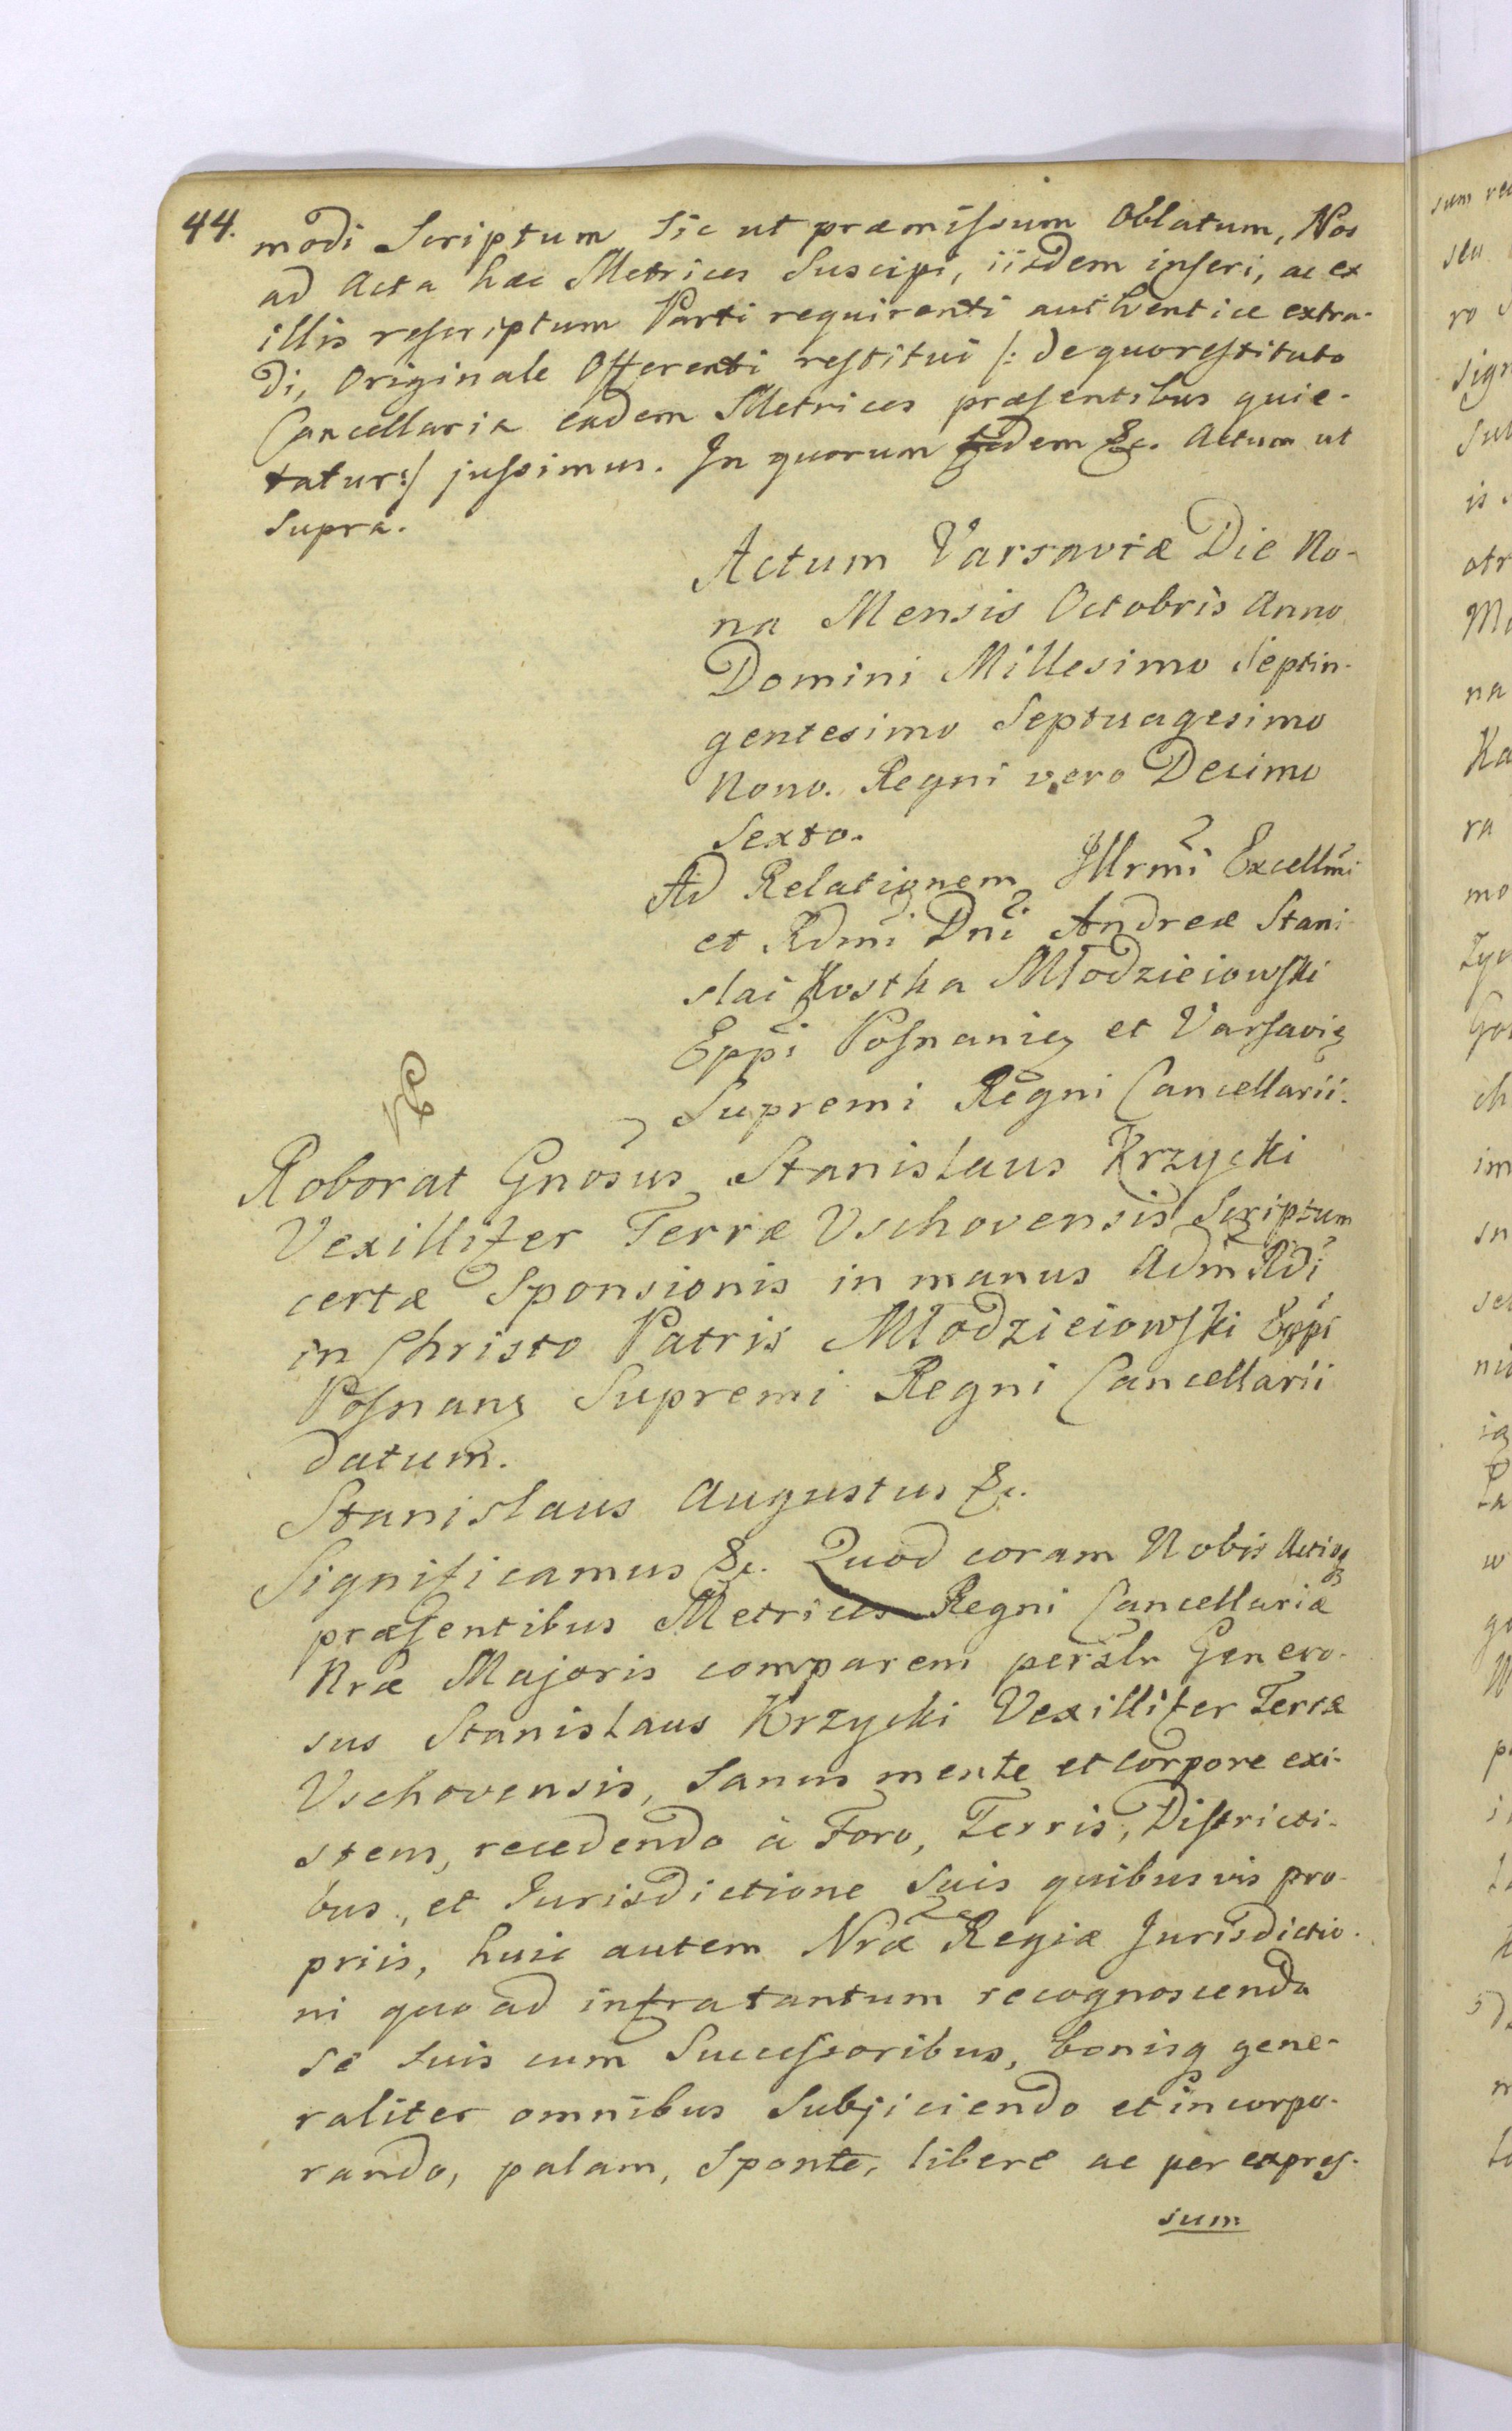 44.
modi Scriptum Sic ut præmissum Oblatum, Nos
ad Acta hæc Metrices Suscipi, iisdem inseri, ac ex
illis rescriptum Parti requirenti authentice extra-
di, Originale Offerenti restitui /: de quo restituto
Cancellaria eadem Metrices præsentibus quie-
tatur :/ jussimus. In quorum fidem &c. Actum ut
Supra.
Actum Varsaviæ Die No-
na Mensis Octobris Anno
Domini Millesimo Septin-
gentesimo Septuagesimo
Nono. Regni vero Decimo
Sexto.
Ad Relationem Illrmi Excellmi
et Rdmi Dni Andreæ Stani-
slai Kostka Młodzieiowski
Eppi Posnanię et Varsavię
Supremi Regni Cancellarii.
Roborat Gnosus Stanislaus Krzycki
Vexillifer Terræ Vschovensis Scriptum
certæ Sponsionis in manus Adm Rdi
in Christo Patris Młodzieiowski Eppi
Posnanę Supremi Regni Cancellarii
datum.
Stanislaus Augustus &c.
Significamus &c. Quod coram Nobis Actisq
præsentibus Metrices Regni Cancellariæ
Nræ Majoris comparens personalr Genero-
sus Stanislaus Krzycki Vexillifer Terræ
Vschovensis, Sanus mente et Corpore exi-
stens, recedendo à Foro, Terris, Districti-
bus, et Jurisdictione Suis quibusvis pro-
priis, huic autem Nræ Regiæ Jurisdictio-
ni quo ad infra tantum recognoscenda
se suis cum Successoribus, bonisq gene-
raliter omnibus Subjiciendo et incorpo-
rando, palam, Sponte, libere ac per expres-
sum